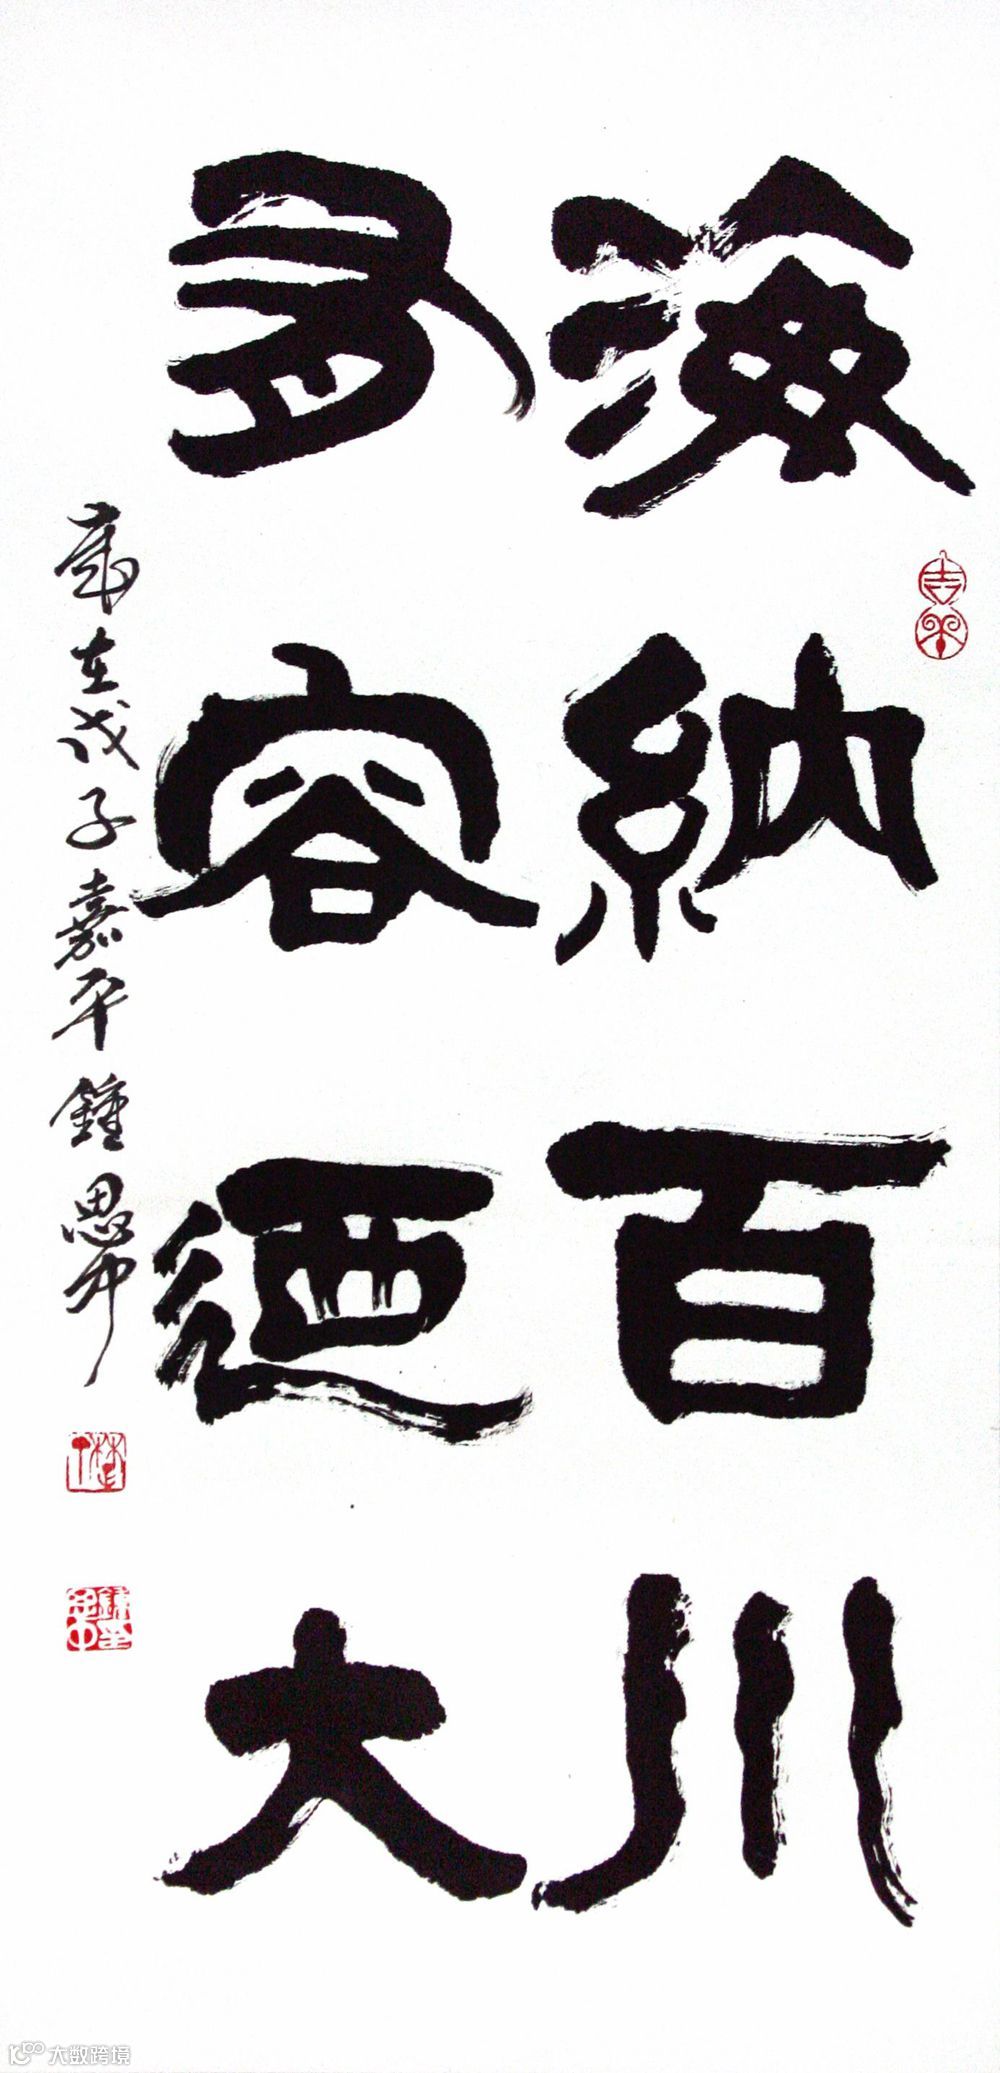 海納百川
有容迺大
歲在戊子嘉平鍾思中
大数跨境